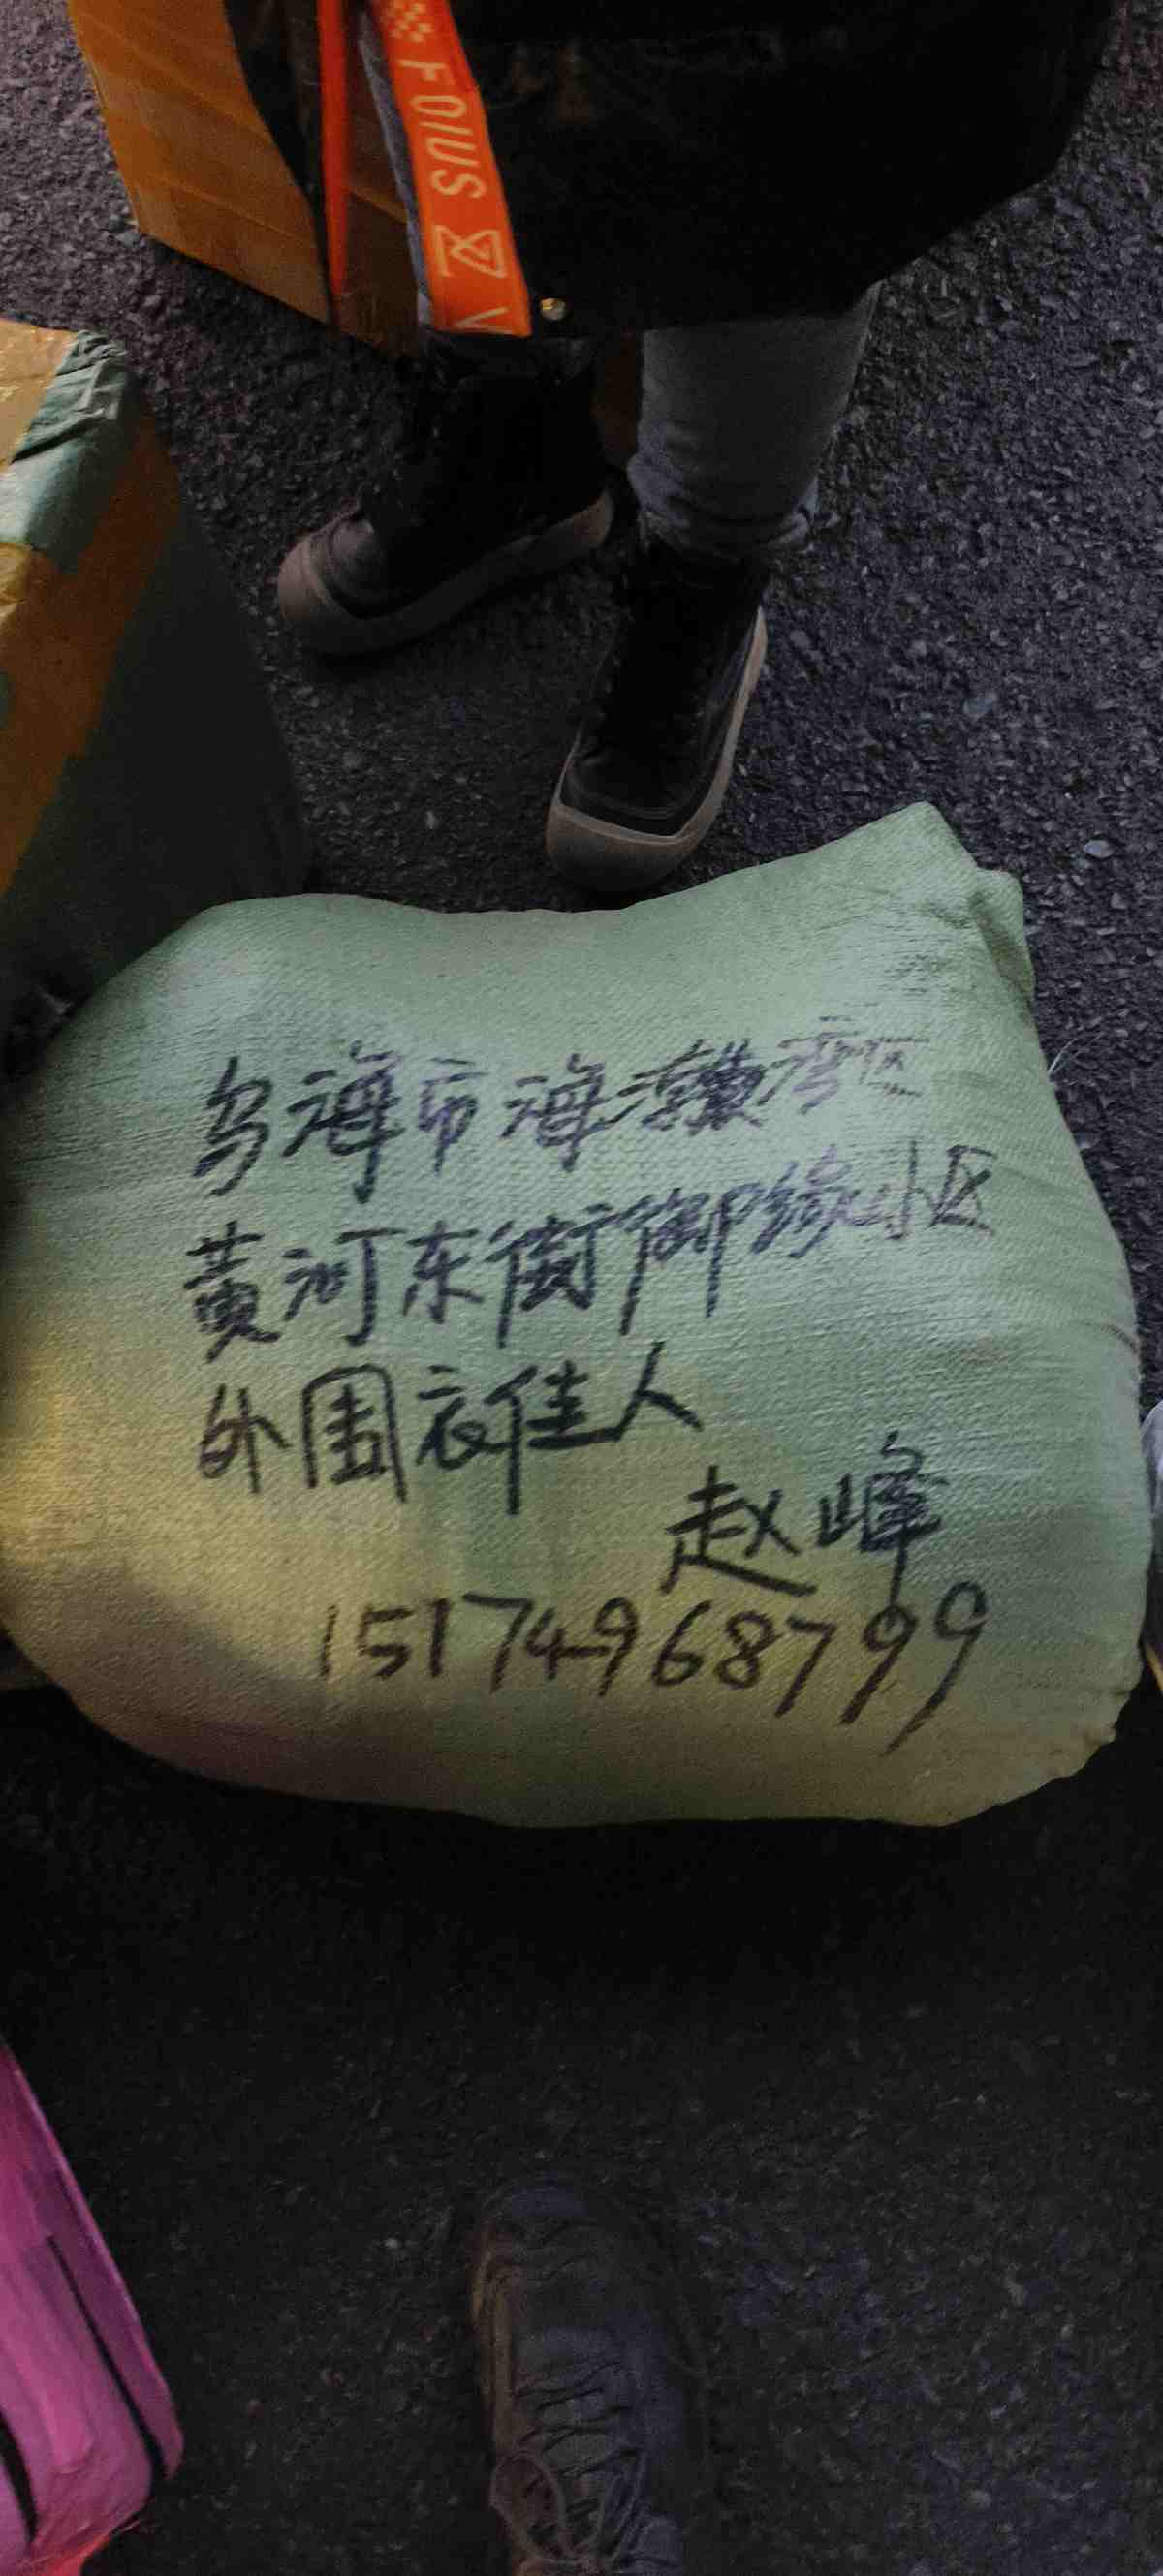 FOIUS
乌海市海渤湾区
黄河东街御缘小区
外围衣佳人
赵峰
15174968799